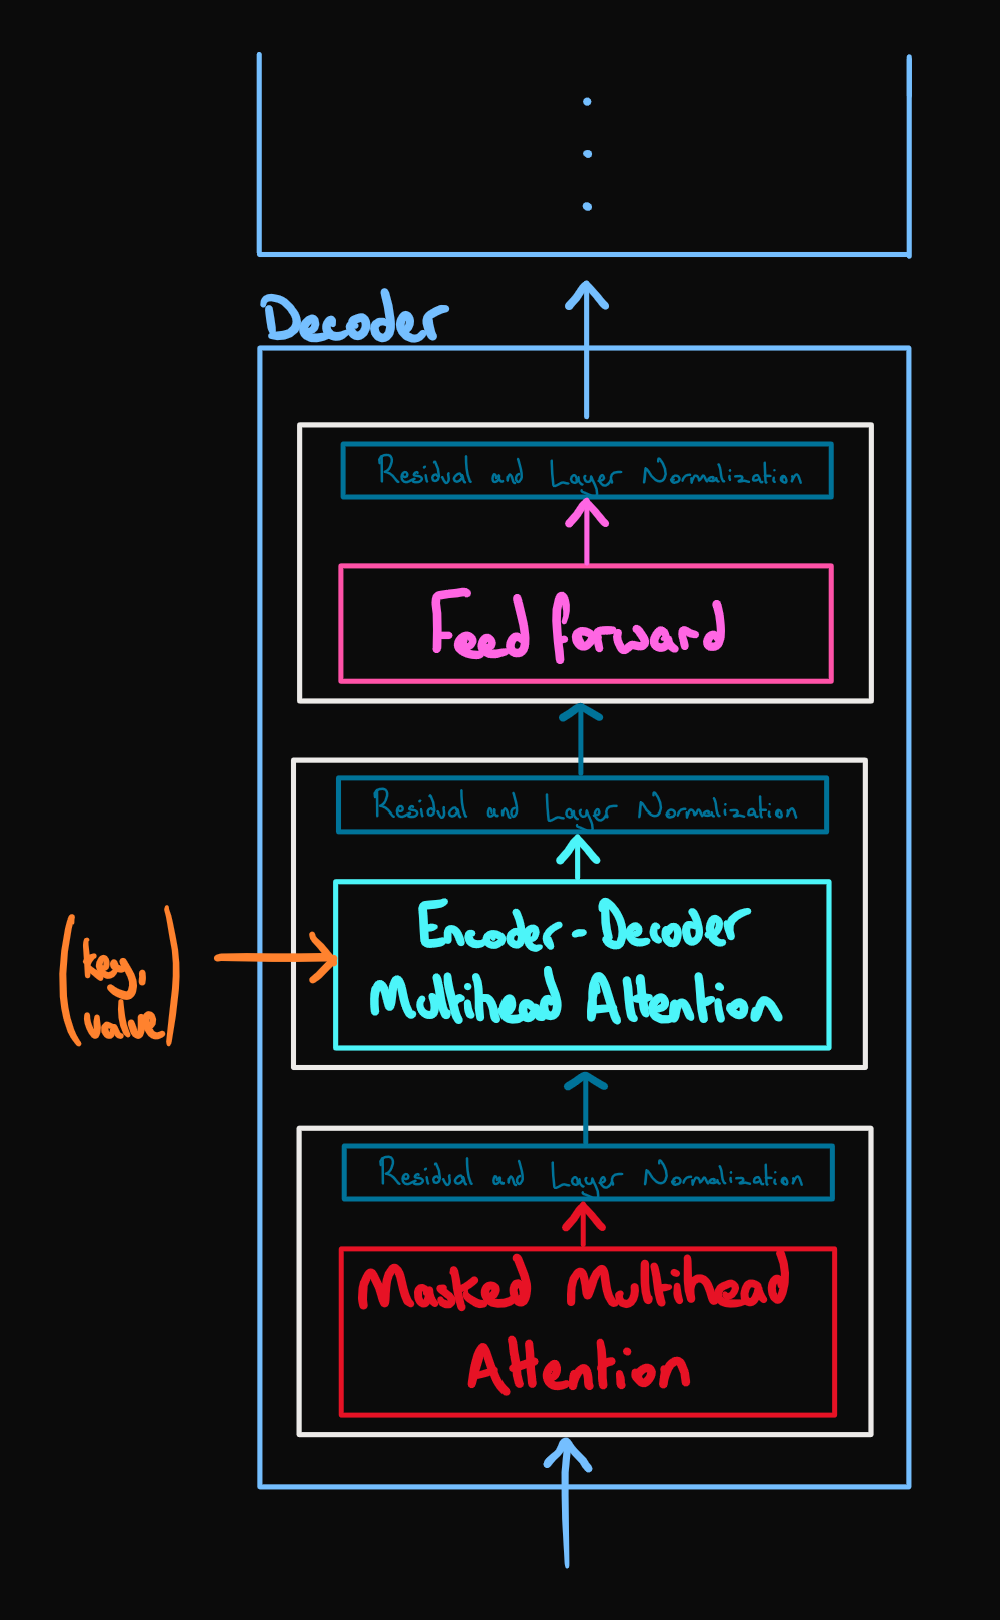 Decoder
Residual and Layer Normalization
Feed forward
Residual and Layer Normalization
Encoder-Decoder
Multihead Attention
(key,
value)
Residual and Layer Normalization
Masked Multihead
Attention